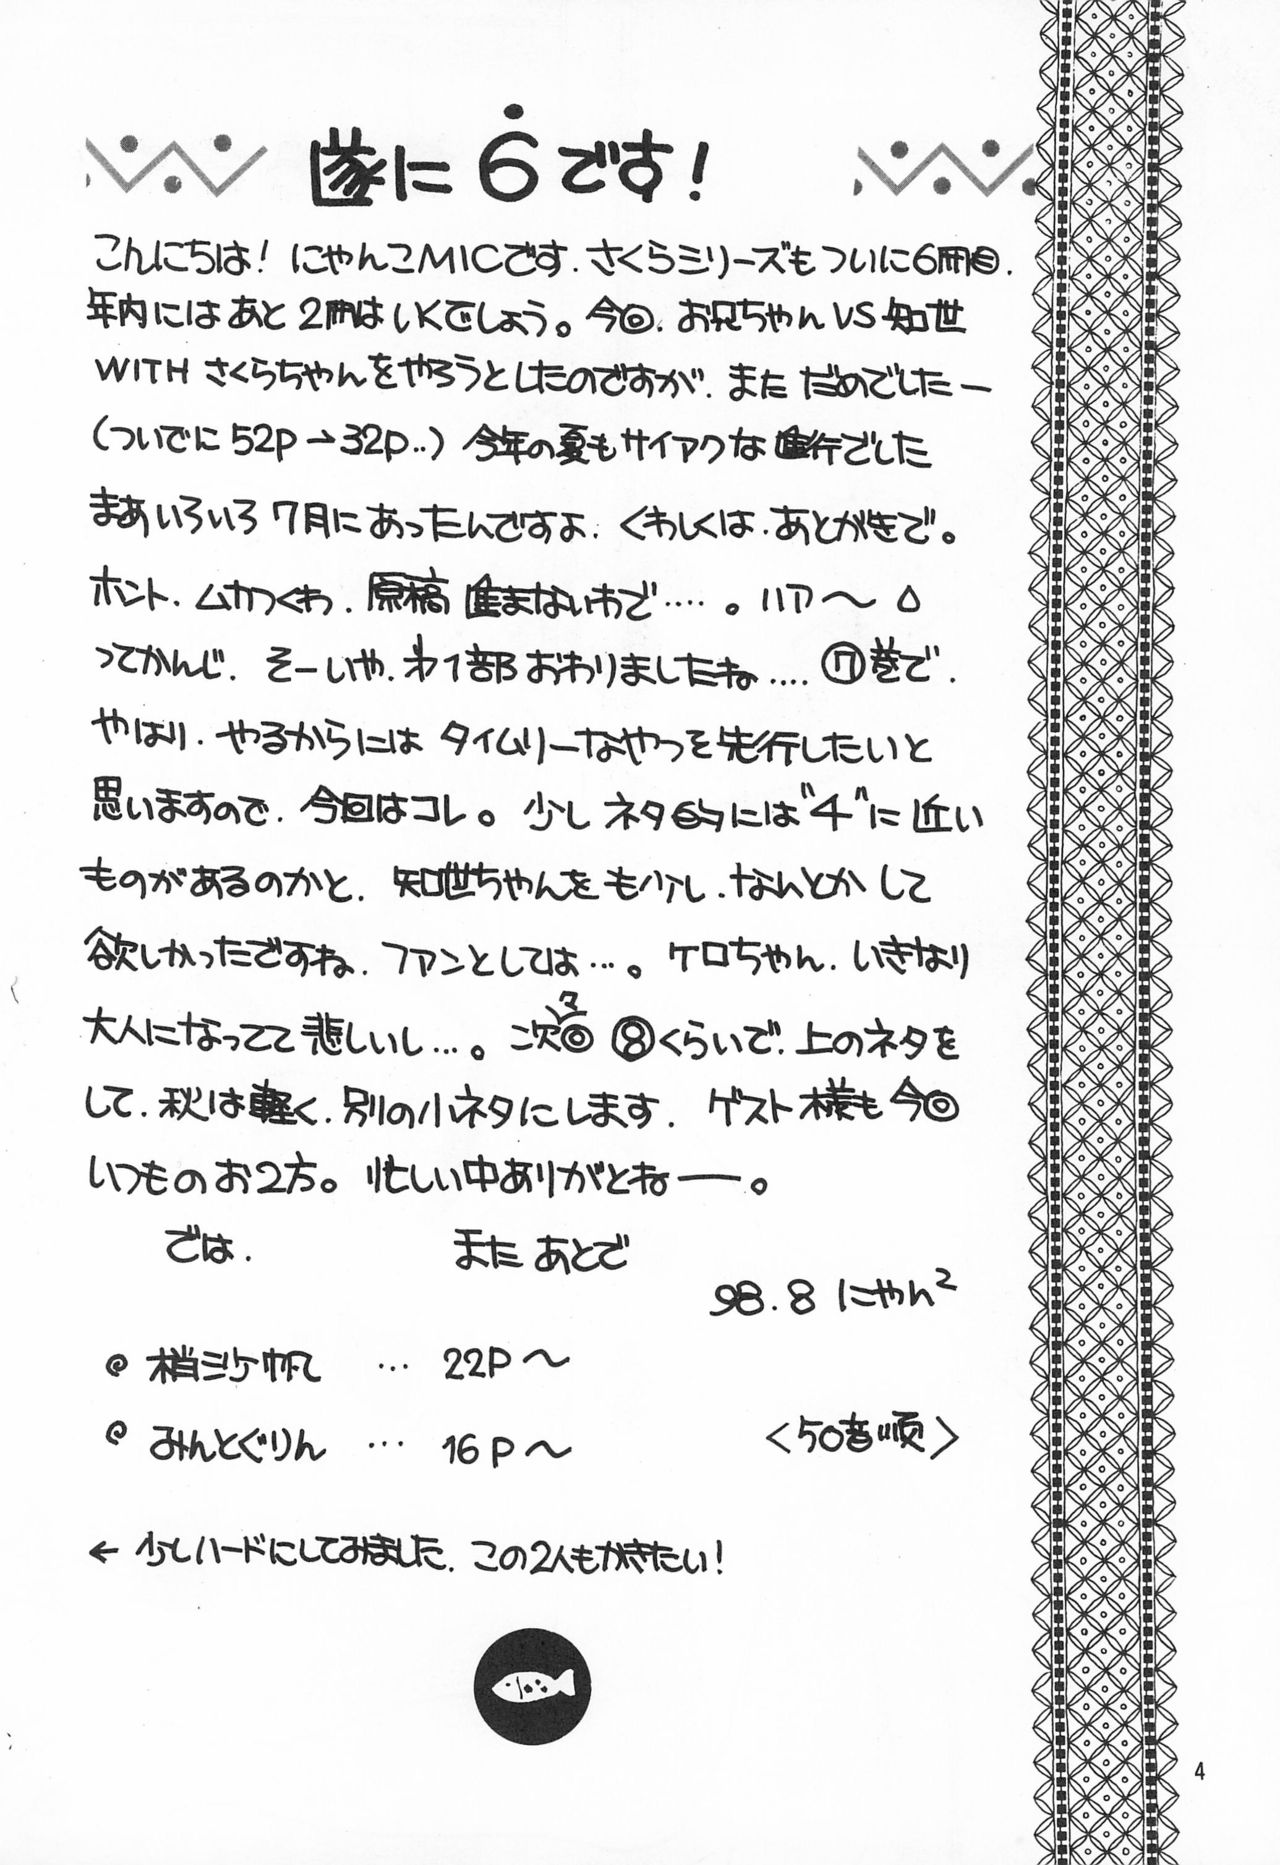 遂に6です!
こんにちは! にゃんこMICです. さくらシリーズもついに6冊目.
年内にはあと2冊はいくでしょう。今回. お兄ちゃんVS知世
WITHさくらちゃんをやろうとしたのですが. まただめでしたー
(ついでに52P→32P..) 今年の夏もサイアクな進行でした
まあいろいろ7月にあったんですよ. くわしくは. あとがきで。
ホント. ムカつくわ. 原稿進まないわで‥‥。ハア〜
ってかんじ. そーいや. 才1部おわりましたね.... ⑦巻で.
やはり. やるからにはタイムリーなやつを先行したいと
思いますので. 今回はコレ。少しネタ的には"4"に近い
ものがあるのかと. 知世ちゃんをも少し. なんとかして
欲しかったですね. ファンとしては…。ケロちゃん. いきなり
大人になってて悲しいし…。次々回⑧くらいで. 上のネタを
して. 秋は軽く. 別の小ネタにします. ゲスト様も今回
いつものお2方。忙しい中ありがとねー。
では. またあとで
98.8 にゃん²
梢ミケ帆 … 22P〜
みんとぐりん … 16P〜 <50音順>
← 少しハードにしてみました. この2人もかきたい!
4